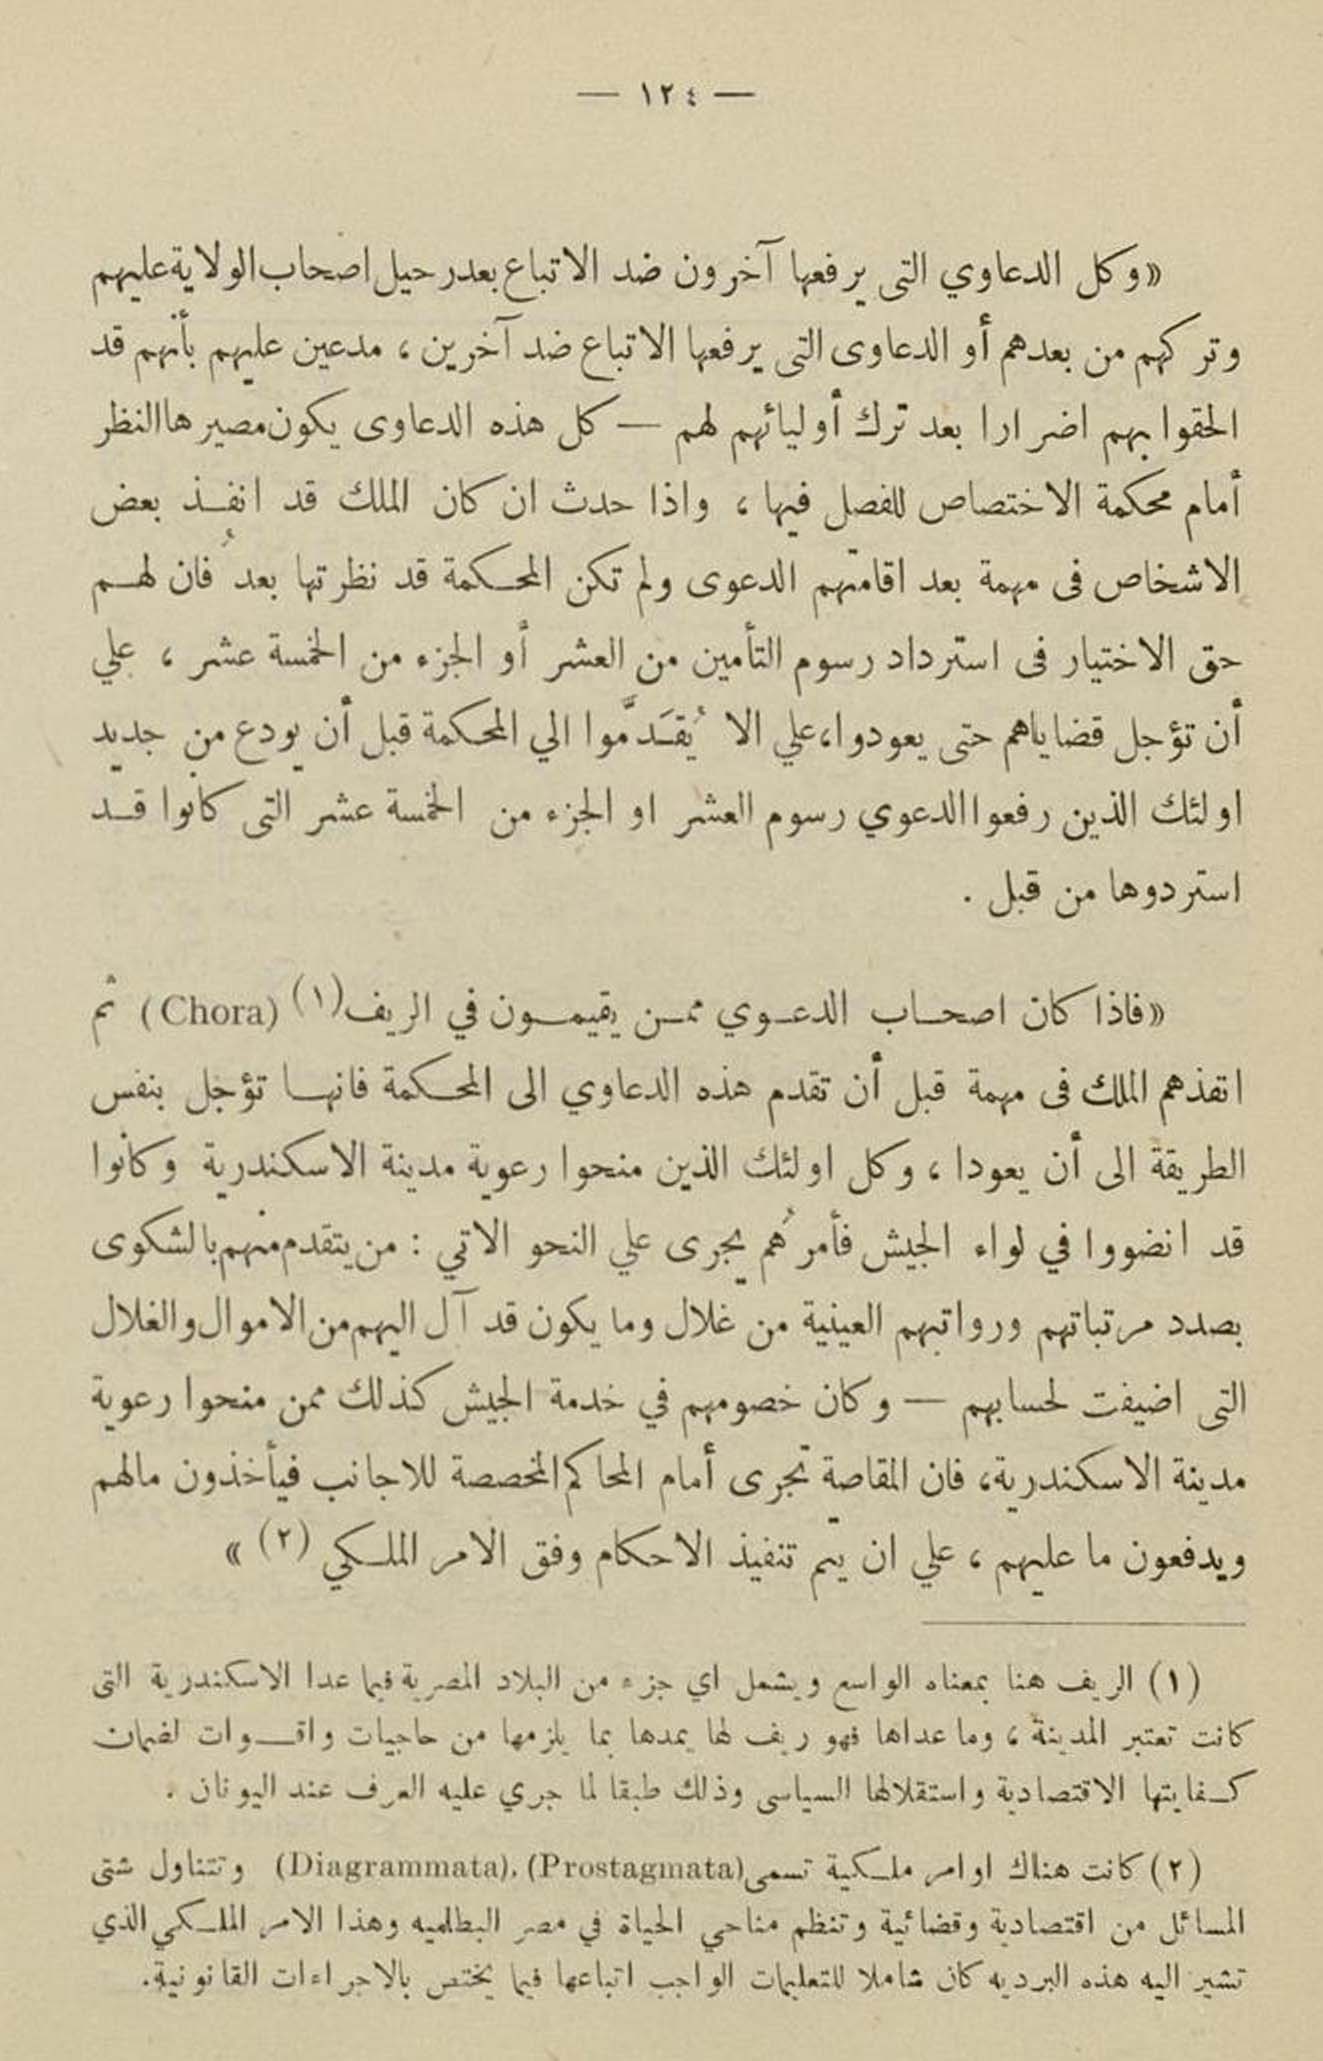 — ١٢٤ —
«وكل الدعاوي التى يرفعها آخرون ضد الاتباع بعد رحيل اصحاب الولاية عليهم
وتركهم من بعدهم أو الدعاوى التى يرفعها الاتباع ضد آخرين ، مدعين عليهم بأنهم قد
الحقوا بهم اضرارا بعد ترك أوليائهم لهم — كل هذه الدعاوى يكون مصيرها النظر
أمام محكمة الاختصاص للفصل فيها ، واذا حدث ان كان الملك قد انفذ بعض
الاشخاص فى مهمة بعد اقامتهم الدعوى ولم تكن المحكمة قد نظرتها بعدُ فان لهم
حق الاختيار فى استرداد رسوم التأمين من العشر أو الجزء من الخمسة عشر ، علي
أن تؤجل قضاياهم حتى يعودوا، علي الا يُقَدَّموا الي المحكمة قبل أن يودع من جديد
اولئك الذين رفعوا الدعوي رسوم العشر او الجزء من الخمسة عشر التى كانوا قد
استردوها من قبل .
«فاذا كان اصحاب الدعوي ممن يقيمون في الريف(١) (Chora) ثم
انفذهم الملك فى مهمة قبل أن تقدم هذه الدعاوي الى المحكمة فانها تؤجل بنفس
الطريقة الى أن يعودا ، وكل اولئك الذين منحوا رعوية مدينة الاسكندرية وكانوا
قد انضووا في لواء الجيش فأمرهُم يجرى علي النحو الاتي : من يتقدم منهم بالشكوى
بصدد مرتباتهم ورواتبهم العينية من غلال وما يكون قد آل اليهم من الاموال والغلال
التى اضيفت لحسابهم — وكان خصومهم في خدمة الجيش كذلك ممن منحوا رعوية
مدينة الاسكندرية، فان المقاصة تجرى أمام المحاكم المخصصة للاجانب فيأخذون مالهم
ويدفعون ما عليهم ، علي ان يتم تنفيذ الاحكام وفق الامر الملكي (٢) »
(١) الريف هنا بمعناه الواسع ويشمل اي جزء من البلاد المصرية فيما عدا الاسكندرية التى
كانت تعتبر المدينة ، وما عداها فهو ريف لها يمدها بما يلزمها من حاجيات واقوات لضمان
كفايتها الاقتصادية واستقلالها السياسى وذلك طبقا لما جري عليه العرف عند اليونان .
(٢) كانت هناك اوامر ملكية تسمى (Prostagmata) ,(Diagrammata) وتتناول شتى
المسائل من اقتصادية وقضائية وتنظم مناحي الحياة في مصر البطلميه وهذا الامر الملكي الذي
تشير اليه هذه البرديه كان شاملا للتعليمات الواجب اتباعها فيما يختص بالاجراءات القانونية.